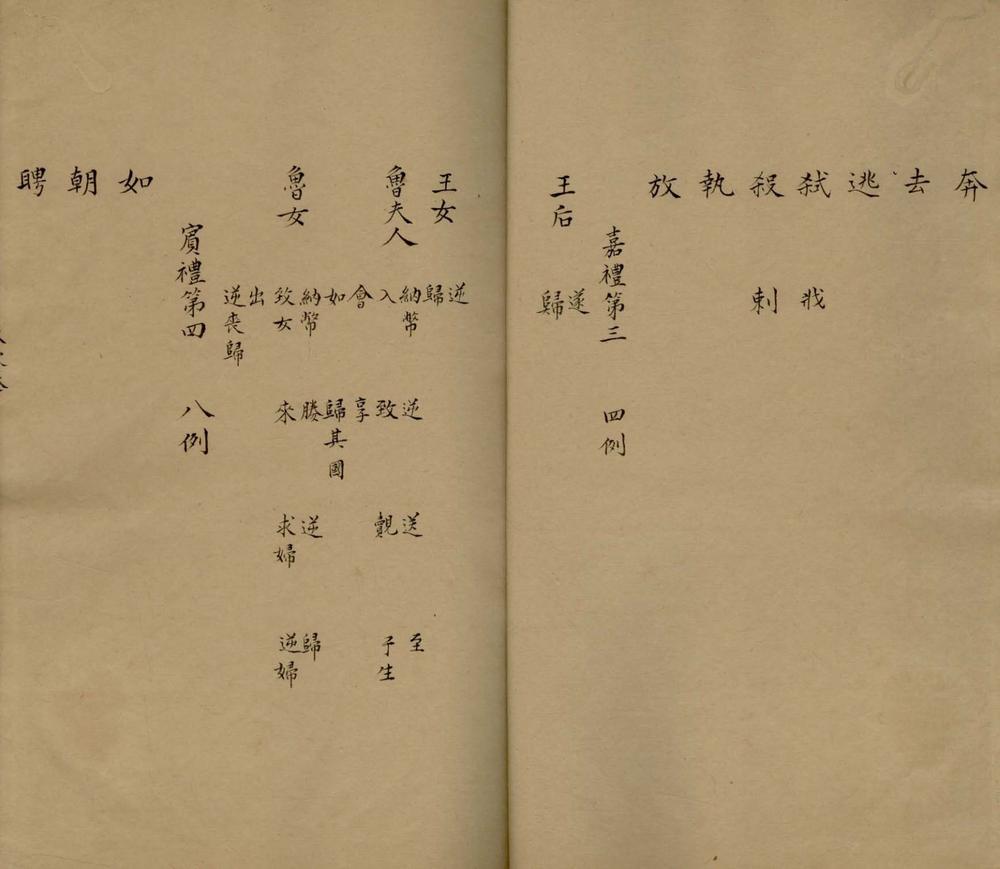 奔
去
逃
弑 戕
殺 刺
執
放
嘉禮第三 四例
王后 逆
歸
王女 逆
歸
魯夫人 納幣 逆 送 至
入 致 覿 子生
會 享
如 歸其國
魯女 納幣 媵 逆 歸
致女 來 求婦 逆婦
出
逆喪歸
賓禮第四 八例
如
朝
聘